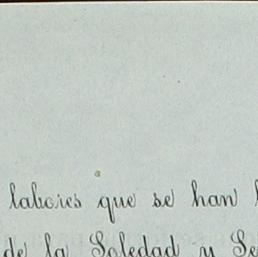 labores que se han
de la Soledad y Se